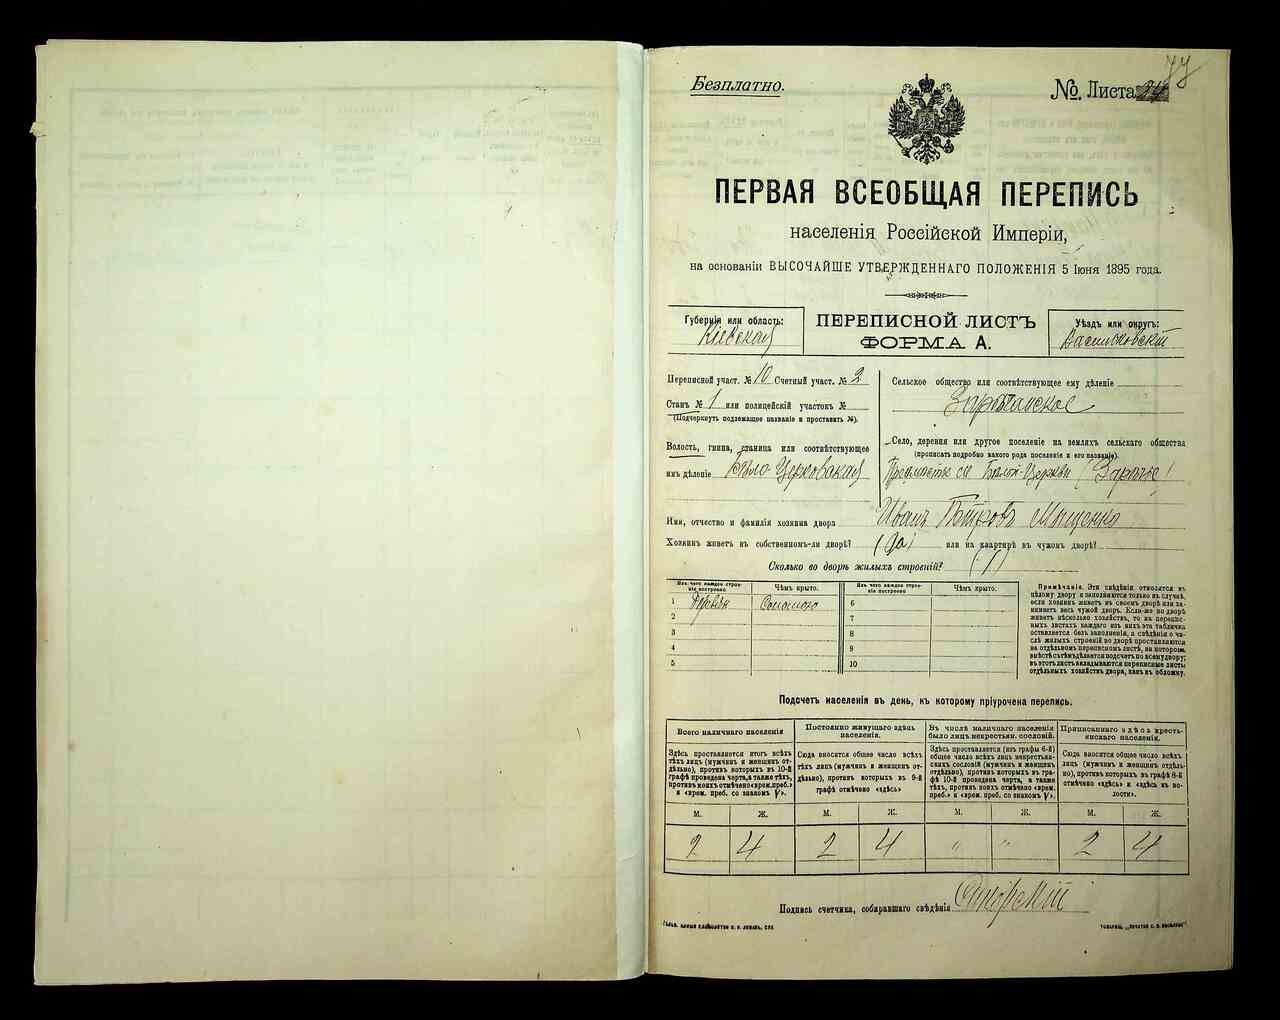 77
Безплатно.
№ Листа 34
ПЕРВАЯ ВСЕОБЩАЯ ПЕРЕПИСЬ
населенія Россійской Имперіи,
на основаніи ВЫСОЧАЙШЕ УТВЕРЖДЕННАГО ПОЛОЖЕНІЯ 5 Іюня 1895 года.
Губернія или область:
Кіевская
ПЕРЕПИСНОЙ ЛИСТЪ
ФОРМА А.
Уѣздъ или округъ:
Васильковскій
Переписной участ. № 10 Счетный участ. № 2
Станъ № 1 или полицейскій участокъ №
(Подчеркнуть подлежащее названіе и проставить №).
Волость, гмина, станица или соотвѣтствующее
имъ дѣленіе Бѣло-Церковская
Сельское общество или соотвѣтствующее ему дѣленіе
Зарѣчанское
Село, деревня или другое поселеніе на земляхъ сельскаго общества
(прописать подробно какого рода поселеніе и его названіе).
Предмѣстье Бѣлой-Церкви (Зарѣчье)
Имя, отчество и фамилія хозяина двора Иванъ Петровъ Мищенко
Хозяинъ живетъ въ собственномъ-ли дворѣ? (да) или на квартирѣ въ чужомъ дворѣ?
Сколько во дворѣ жилыхъ строеній? (1)
Изъ чего каждое строеніе построено
Чѣмъ крыто.
Изъ чего каждое строеніе построено
Чѣмъ крыто.
1 Деревян Соломою 6
2 7
3 8
4 9
5 10
Примѣчаніе. Эти свѣдѣнія относятся къ
цѣлому двору и заполняются только въ случаѣ,
если хозяинъ живетъ въ своемъ дворѣ или занимаетъ
весь чужой дворъ. Если-же во дворѣ
живетъ нѣсколько хозяйствъ, то на переписныхъ
листахъ каждаго изъ нихъ эта табличка
оставляется безъ заполненія, а свѣдѣнія о числѣ
жилыхъ строеній во дворѣ проставляются
на отдѣльномъ переписномъ листѣ, на которомъ
вмѣстѣ съ тѣмъ дѣлается подсчетъ по всему двору;
въ этотъ листъ вкладываются переписные листы
отдѣльныхъ хозяйствъ двора, какъ въ обложку.
Подсчетъ населенія въ день, къ которому пріурочена перепись.
Всего наличнаго населенія
Здѣсь проставляется итогъ всѣхъ
тѣхъ лицъ (мужчинъ и женщинъ отдѣльно),
противъ которыхъ въ 10-й
графѣ проведена черта, а также тѣхъ,
противъ коихъ отмѣчено «врем. преб.»
и «врем. преб. со знакомъ V».
Постоянно живущаго здѣсь
населенія.
Сюда вносится общее число всѣхъ
тѣхъ лицъ (мужчинъ и женщинъ отдѣльно),
противъ которыхъ въ 9-й
графѣ отмѣчено «здѣсь»
Въ числѣ наличнаго населенія
было лицъ некрестьян. сословій.
Здѣсь проставляется (изъ графы 6-й)
общее число всѣхъ лицъ некрестьянскихъ
сословій (мужчинъ и женщинъ
отдѣльно), противъ которыхъ въ графѣ
10-й проведена черта, а также
тѣхъ, противъ коихъ отмѣчено «врем.
преб.» и «врем. преб. со знакомъ V».
Приписаннаго здѣсь крестьянскаго
населенія.
Сюда вносится общее число всѣхъ
лицъ (мужчинъ и женщинъ отдѣльно),
противъ которыхъ въ графѣ 8-й
отмѣчено «здѣсь» и «здѣсь въ волости».
М. Ж. М. Ж. М. Ж. М. Ж.
2 4 2 4 " " 2 4
Подпись счетчика, собиравшаго свѣдѣнія